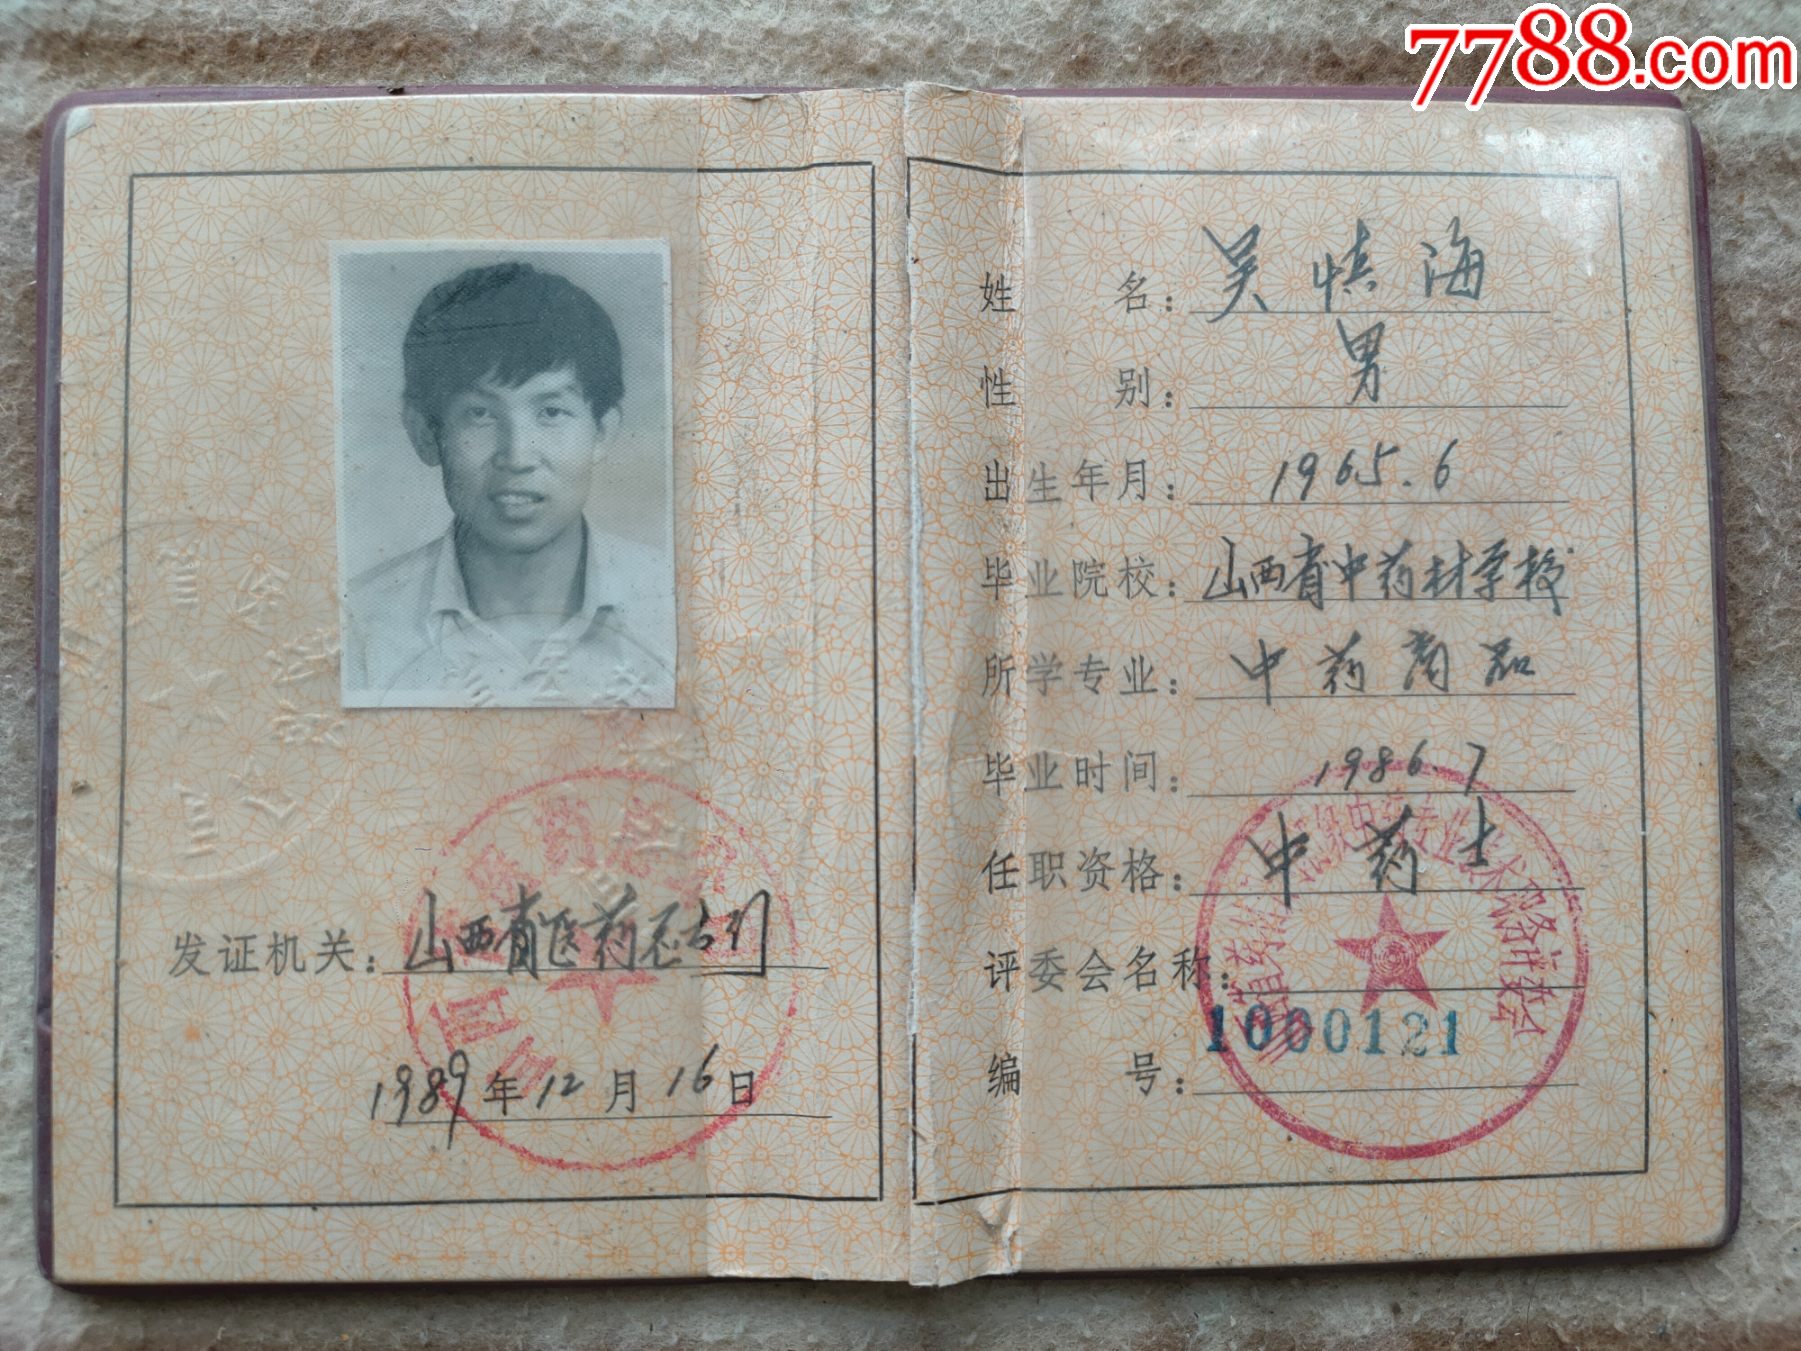 7788.com
发证机关：山西省医药总公司
1989年12月16日
姓名：吴慎海
性别：男
出生年月：1965.6
毕业院校：山西省中药材学校
所学专业：中药商品
毕业时间：1986.7
任职资格：中药士
评委会名称：
编号：1000121